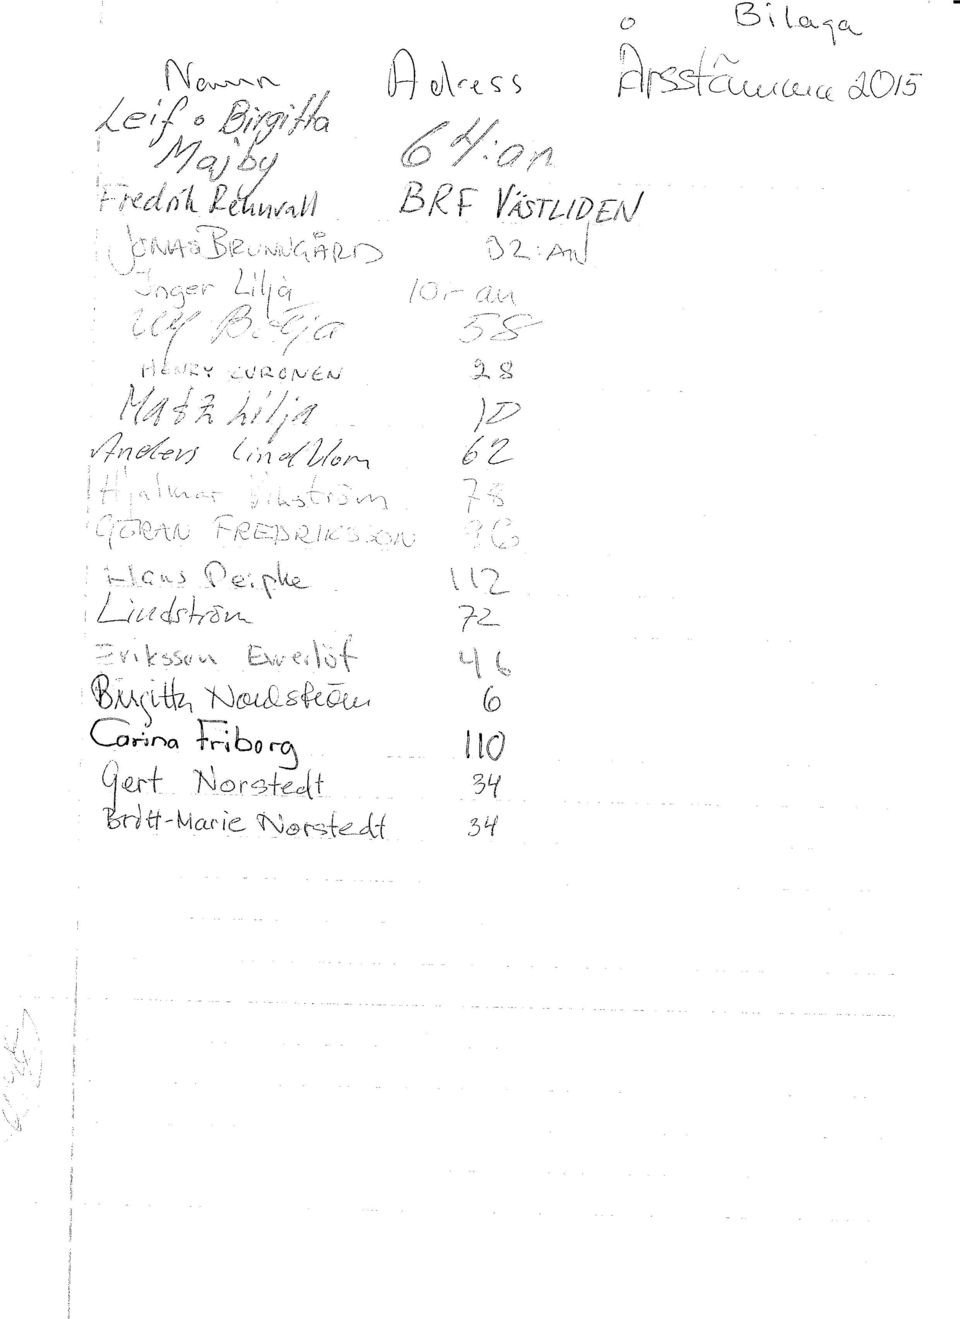 Bilaga
Namn Adress Årsstämma 2015
Leif o Birgitta
Majby 64:an
Fredrik Rehnvall BRF VÄSTLIDEN
JONAS BRUNNGÅRD 32:AN
Inger Lilja 10:-an
Ulf 58
HENRY KURONEN 28
Matz Lilja 10
Anders Lindblom 62
Hjalmar Vikström 78
GÖRAN FREDRIKSSON 96
Claus Deipke 112
Lindström 72
Eriksson Ewerlöf 46
Birgitta Nordström 6
Carina Friborg 110
Gert Norstedt 34
Britt-Marie Norstedt 34